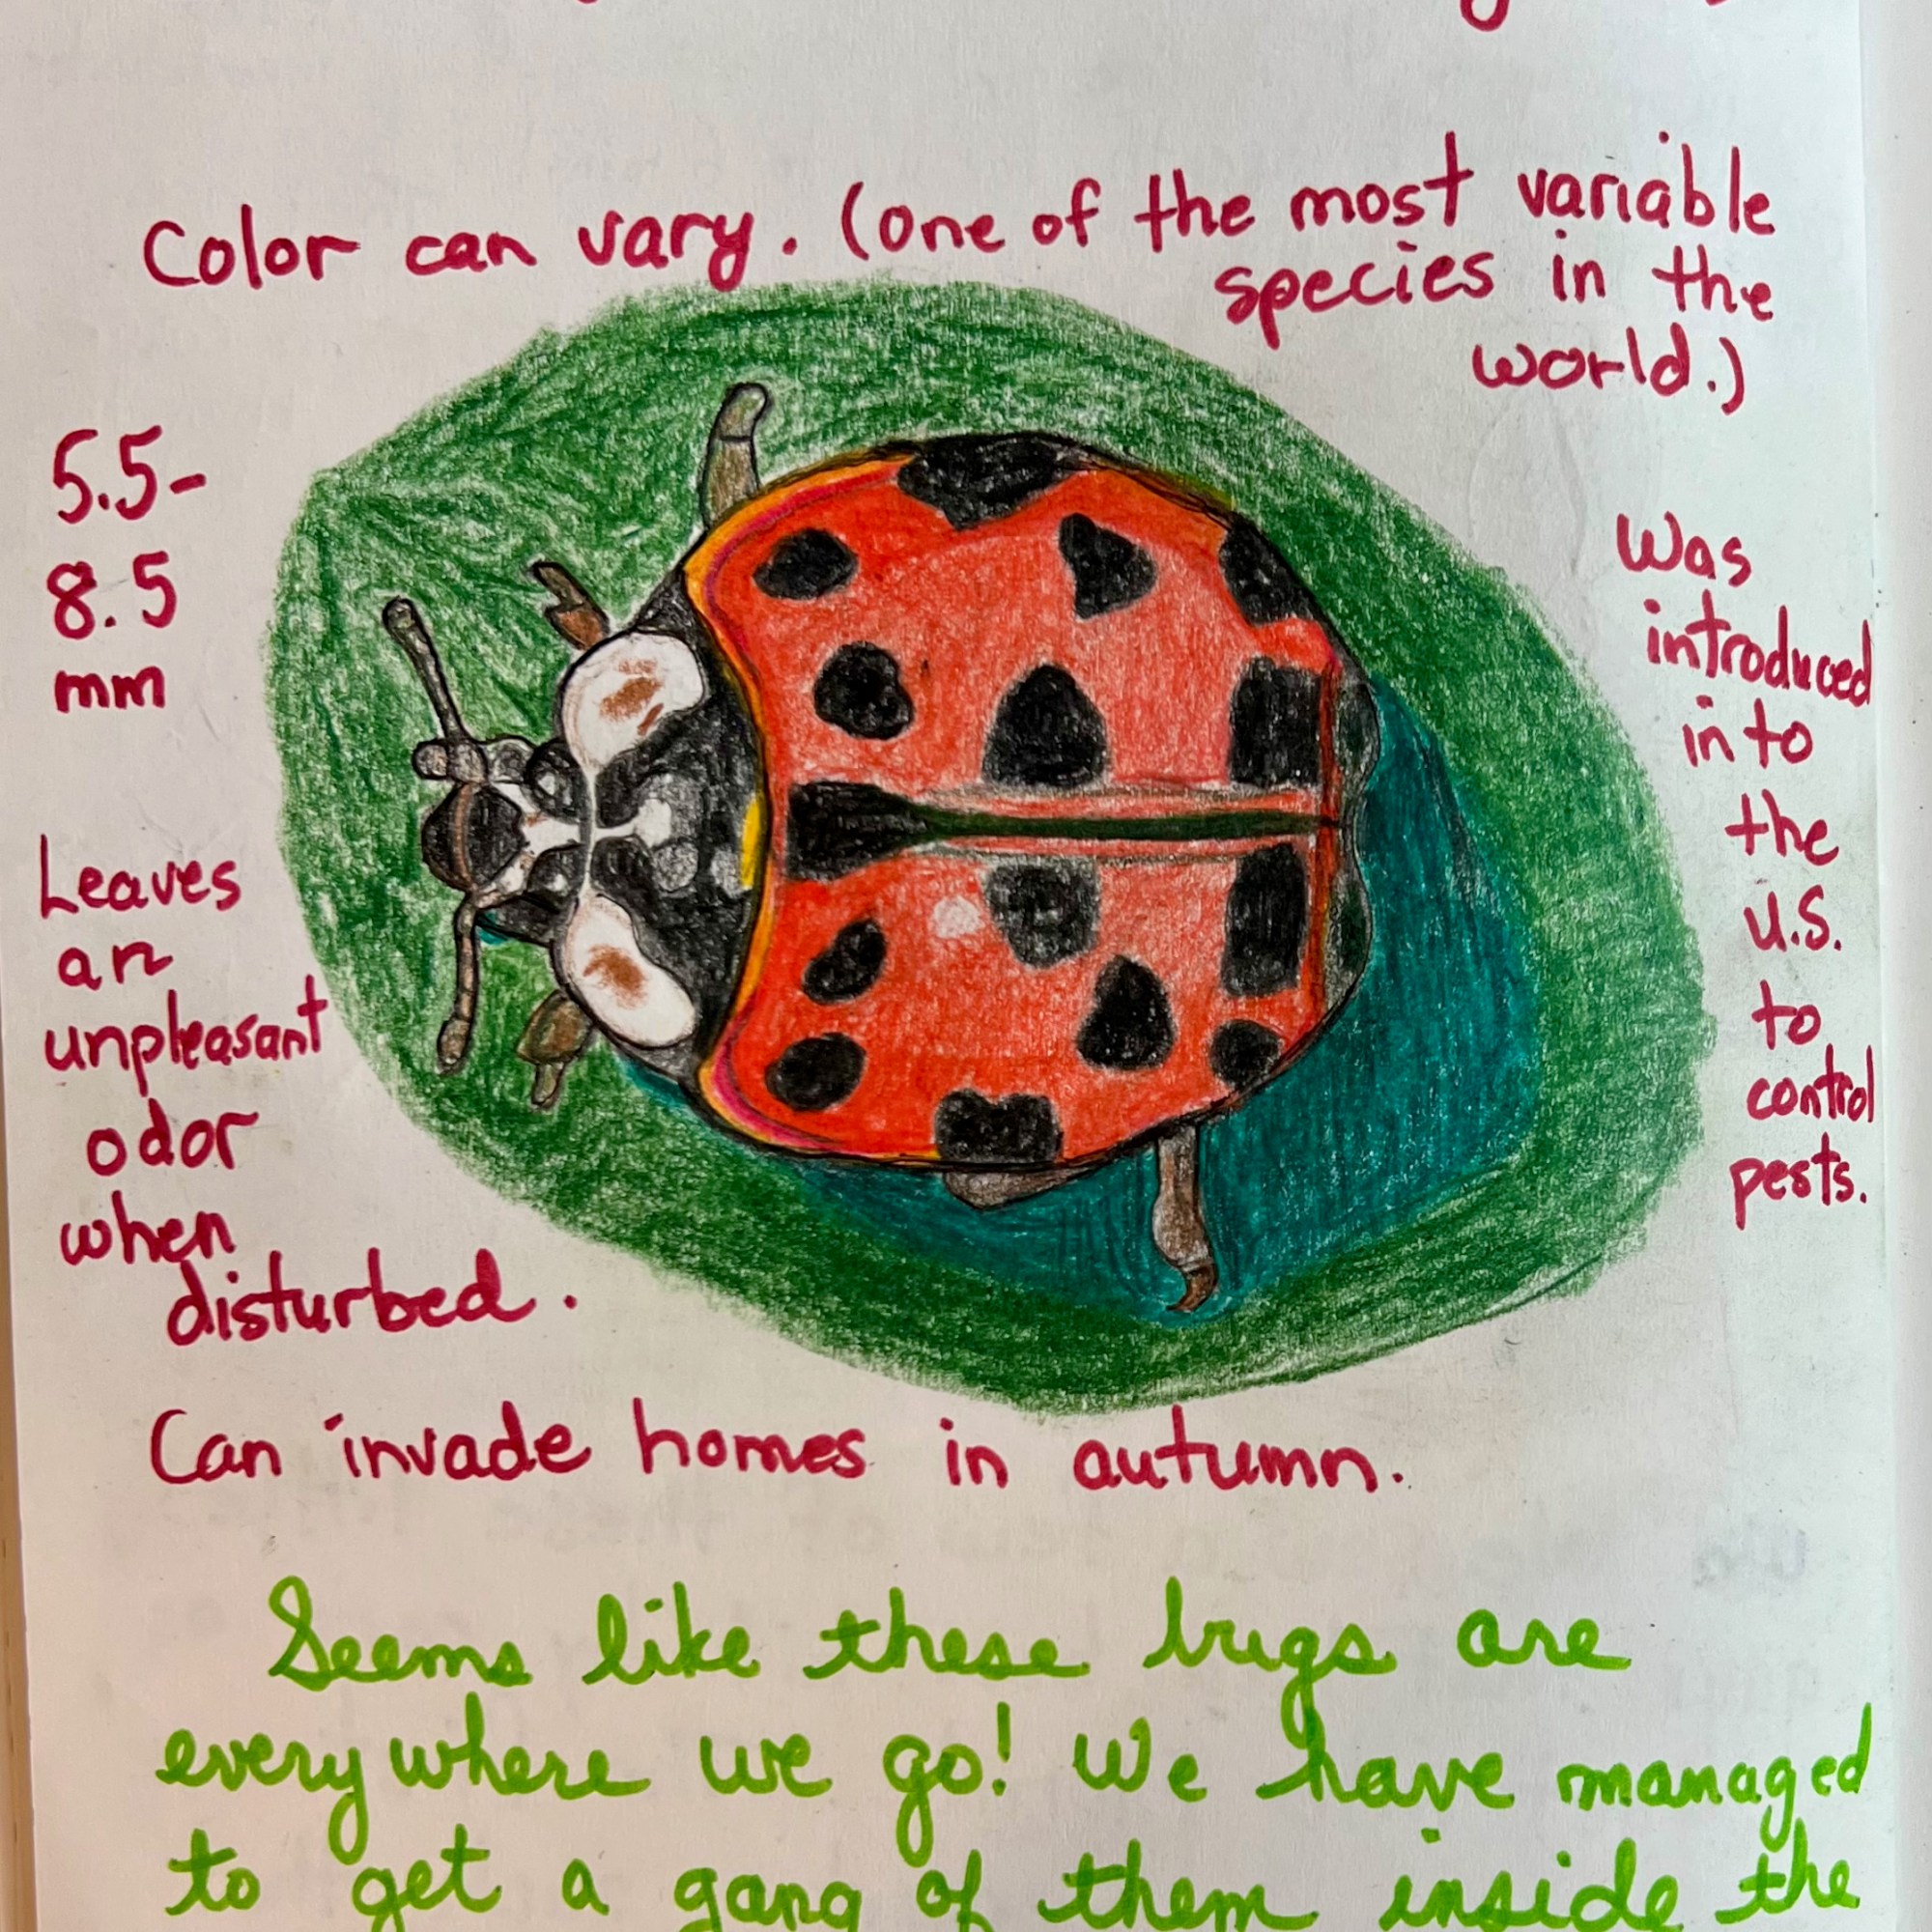 Color can vary. (One of the most variable
species in the
world.)
5.5-
8.5
mm
Was
introduced
into
the
U.S.
to
control
pests.
Leaves
an
unpleasant
odor
when
disturbed.
Can invade homes in autumn.
Seems like these bugs are
everywhere we go! We have managed
to get a gang of them inside the